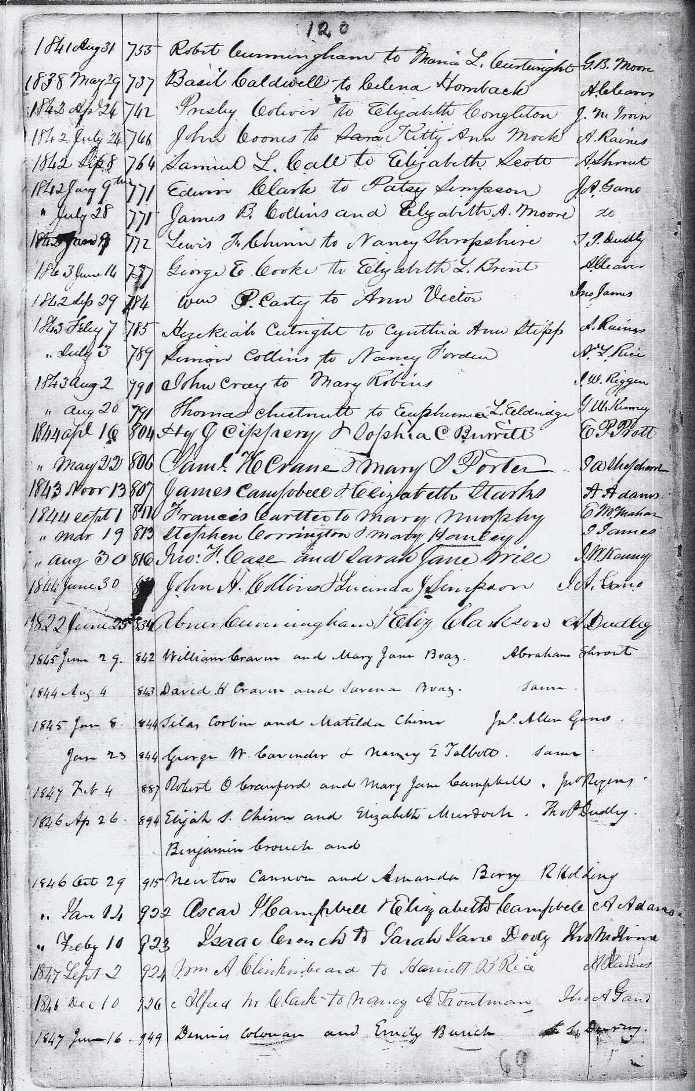 120
1841 Aug 31 755 Robt Cunningham to Maria L. Curtright G. B. Moore
1838 May 29 737 Basil Caldwell to Celena Hornback
1843 Ap 26 742 Coliver to Elizabeth Congleton J. M.
1842 July 26 746 John Coones to Sarai Kitty Ann Mock A. Raines
1842 Sep 8 764 Samuel L. Call to Elizabeth Scott A Shrout
1842 Jany 9th 771 Edwin Clark to Patsy Simpson J. A. Gano
" July 28 771 James B. Collins and Elizabeth A. Moore do
9 772 Lewis F. Chinn to Nancy Shropshire T. P. Dudly
1843 June 14 777 George E Cooke to Elizabeth L. Brent
1842 Sep 29 784 Wm P. Carty to Ann Victor Jno James
1843 Feby 7 785 Hezekiah Cutright to Cynthia Ann Stipp A. Raines
" July 3 789 Simon Collins to Nancy Forden
1843 Aug 2 790 John Cray to Mary Robins J. W. Riggen
" Aug 20 791 Thomas Chestnutt to Euphemia L. Eldridge G W Kenney
1844 apl 16 804 Hy G Cippery & Sophia C Burritt E. P. Pratt
" May 22 806 Saml. H Crane & Mary S Porter J A Shepherd
1843 Novr 13 807 James Campbell & Elizabeth Starks A Adams
1844 Sept 1 Francis Curtter to Mary Murphy E McMahon
" Mar 19 813 Stephen Corrington & Mary Howley J James
" Aug 30 816 Jno. F. Case and Sarah Jane Wise
1844 June 30 John H. Collins & Lucinda J Simpson J. A. Gano
1822 June 25 834 Abner Cunningham & Eliz Clarkson A Dudley
1845 Jun 29. 842 William Craven and Mary Jane Boaz. Abraham Shrout
1844 Aug 4 843 David H Craven and Surena Boaz. Same.
1845 Jan 8 844 Silas Corbin and Matilda Chinn Jno. Allen Gano.
Jan 23 844 George W. Cavender & Nancy E Talbott. Same.
1847 Feb 4 887 Robert O Crawford and Mary Jane Campbell. Jno Rogers.
1846 Ap 26. 894 Elijah S. Chinn and Elizabeth Murdock. Thos. P Dudley.
Benjamin Crouch and
1846 Oct 29 915 Newton Cannon and Amanda Berry R Holding
" Jan 14 922 Ascar Campbell & Elizabeth Campbell A Adams.
" Feby 10 923 Isaac Crouch to Sarah Jane Dody
1847 Sept 2 924 Wm A Clinkinbeard to Harriett B Rice A Raines
1846 Dec 10 926 Alfred M Clark to Nancy A Troutman Jno A Gano
1847 Jun 16 949 Dennis Colonan and Emily Burich
69